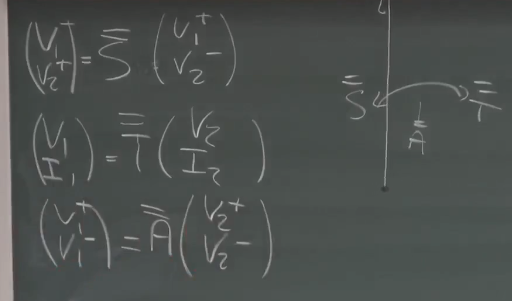 (V₁⁺ V₂⁺) = S̿ (V₁⁺ V₂⁻)
(V₁ I₁) = T̿ (V₂ I₂)
(V₁⁺ V₁⁻) = A̿ (V₂⁺ V₂⁻)
S̿ T̿
A̿